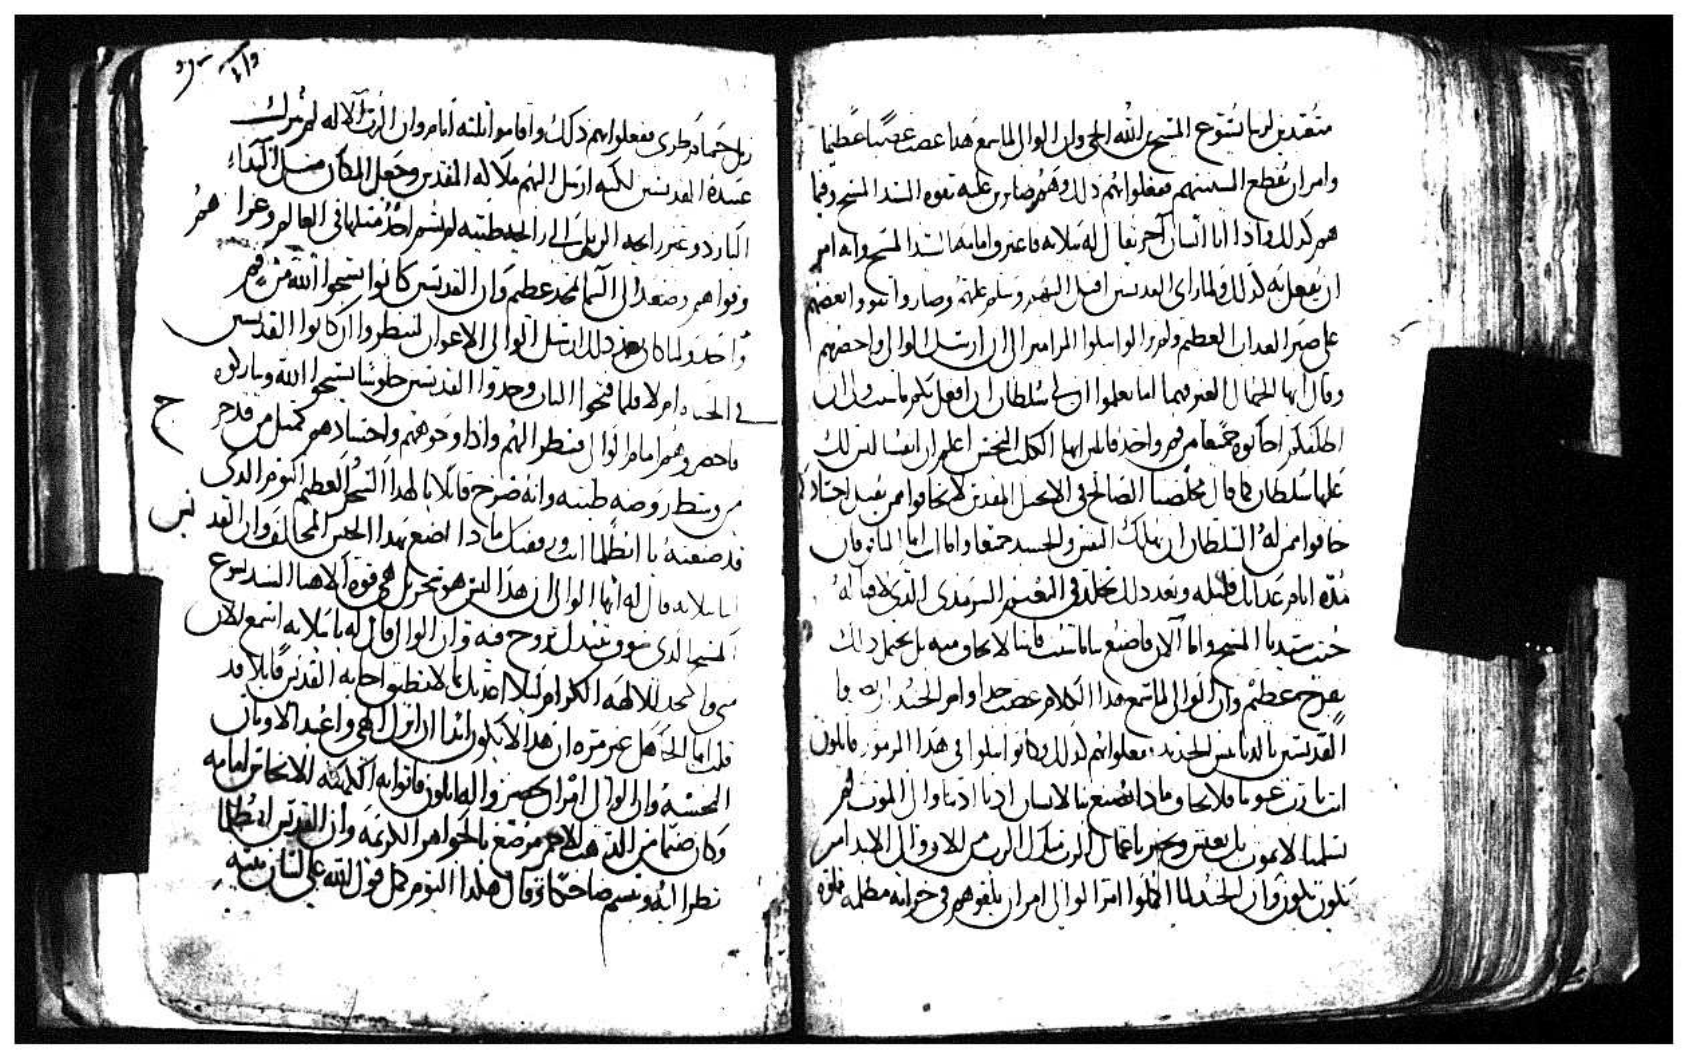 معتقدين لربنا يسوع المسيح ابن الله الحي وان الوالي لما سمع هذا غضب غضبا عظيما
وامر ان تقطع السنتهم ففعلوا بهم ذلك وهم صابرين عليه بقوه السيد المسيح وفيما
هم كذلك واذا انسان آخر يقال له بيلابه فاعترف امامه بالسيد المسيح وانه امر
ان يفعل به كذلك ولما راى القديسين اقبل اليهم وسلم عليهم وصاروا يقووا بعضهم
على صبر العذاب العظيم ولم يزالوا يتلوا المزامير الى ان ارسل الوالي واحضرهم
وقال ايها الجهال الغير فهما اما تعلموا ان لي سلطان ان افعل بكم ما شيت والى ان
اطلقكم اجابوه جميعا من فم واحد قايلين ايها الكلب النجس اعلم ان انفسنا ليس لك
عليها سلطان كما قال مخلصنا الصالح في الانجيل المقدس لا تخافوا ممن يقتل اجسادكم
خافوا ممن له السلطان ان يهلك النفس والجسد جميعا واما انت ايها
مده ايام عذابك قليله وبعد ذلك نخلد في النعيم السرمدي الذي لا فنا له
حيث سيدنا المسيح واما الآن فاصنع بنا ما شيت فاننا لا نخاف منه بل نحتمل ذلك
بفرح عظيم وان الوالي لما سمع هذا الكلام غضب جدا وامر الجند
القديسين بالدبابيس الحديد ففعلوا بهم كذلك وكانوا يتلوا في هذا المزمور قايلون
انت يا رب عوننا فلا نخاف وماذا يصنع بنا الانسان
يسلمنا لا نموت بل نعيش ونخبر باعمال الرب مبارك الرب من الان والى الابد امين
يكون يكون وان الجند لما اكملوا امر الوالي امر ان يلقوهم في خزانه مظلمه
زبل حمام طري ففعلوا بهم ذلك واقاموا ثلثه ايام وان الرب الاله لم يترك
عبيده القديسين لكنه ارسل اليهم ملاكه المقدس وجعل المكان مثل النداء
البارد وغير رايحه الزبل الى رايحه طيبه لم يشم احد مثلها في العالم وعزا هم
وقواهم وصعد الى السما بمجد عظيم وان القديسين كانوا يسبحوا الله من فم
واحد ولما كان بعد ذلك ارسل الوالي الاعوان لينظروا ان كانوا القديسين
في الحياه ام لا فلما فتحوا الباب وجدوا القديسين جلوسا يسبحوا الله ويباركوه
فاحضروهم امام الوالي فنظر اليهم واذا وجوههم واجسادهم كمثل من قد خرج
من وسط روضه طيبه وانه صرخ قايلا يا لهذا السحر العظيم اليوم الذي
قد صنعته يا انطلما انت ورفقتك ماذا اصنع بهذا الجنس المخالف وان القديس
بيلابه قال له ايها الوالي ان هذا ليس هو سحر بل هي قوه الاهنا السيد يسوع
المسيح الذي سوف يبيدك بروح فيه وان الوالي قال له يا بيلابه اسمع الان
مني واسجد للالهه الكرام ليلا اعذبك بما لا تطيق اجابه القديس قايلا قد
قلت ايها الجاهل غير مره ان هذا لا يكون ابدا ان اترك الهي واعبد الاوثان
النجسه وان الوالي امر ان يحضروا اليه ابلون فاتوا به الكهنه للايحا قدامه
وكان صنما من الذهب الاحمر مرصع بالجواهر الكريمه وان القديس انطلما
نظر اليه وتبسم ضاحكا وقال هكذا اليوم كمل قول الله على لسان نبيه